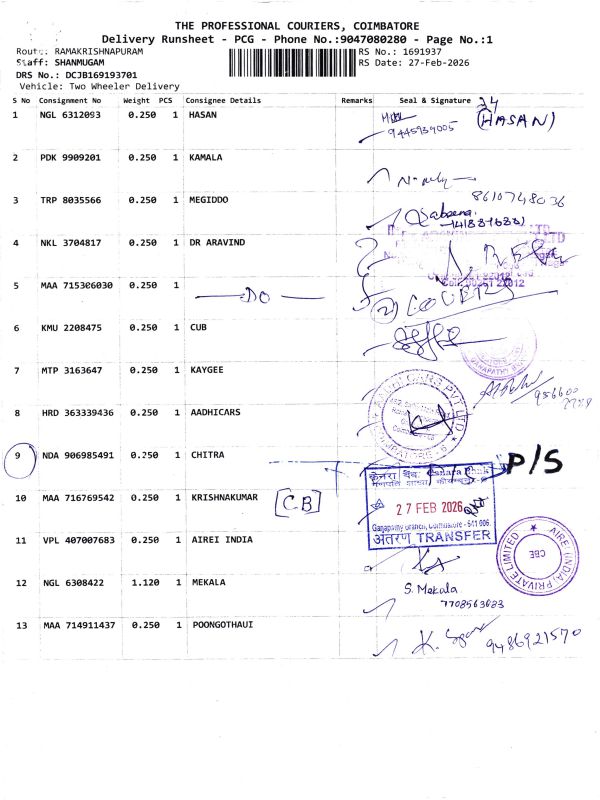 THE PROFESSIONAL COURIERS, COIMBATORE
Delivery Runsheet - PCG - Phone No.:9047080280 - Page No.:1
Route: RAMAKRISHNAPURAM
RS No.: 1691937
Staff: SHANMUGAM
RS Date: 27-Feb-2026
DRS No.: DCJB169193701
Vehicle: Two Wheeler Delivery
S No Consignment No Weight PCS Consignee Details Remarks Seal & Signature
24
1 NGL 6312093 0.250 1 HASAN (HASAN)
9445939005
2 PDK 9909201 0.250 1 KAMALA
3 TRP 8035566 0.250 1 MEGIDDO 8610748036
Sabeena
4 NKL 3704817 0.250 1 DR ARAVIND
5 MAA 715306030 0.250 1 DO
6 KMU 2208475 0.250 1 CUB
7 MTP 3163647 0.250 1 KAYGEE
8 HRD 363339436 0.250 1 AADHICARS
AADHI CARS PVT LTD
COIMBATORE - 6
9 NDA 906985491 0.250 1 CHITRA P/S
केनरा बैंक Canara Bank
10 MAA 716769542 0.250 1 KRISHNAKUMAR [CB] 27 FEB 2026
Ganapathy Branch, Coimbatore - 641 006.
अंतरण TRANSFER
11 VPL 407007683 0.250 1 AIREI INDIA
AIREI (INDIA) PRIVATE LIMITED
CBE
12 NGL 6308422 1.120 1 MEKALA S. Mekala
7708563683
13 MAA 714911437 0.250 1 POONGOTHAUI 9486921570